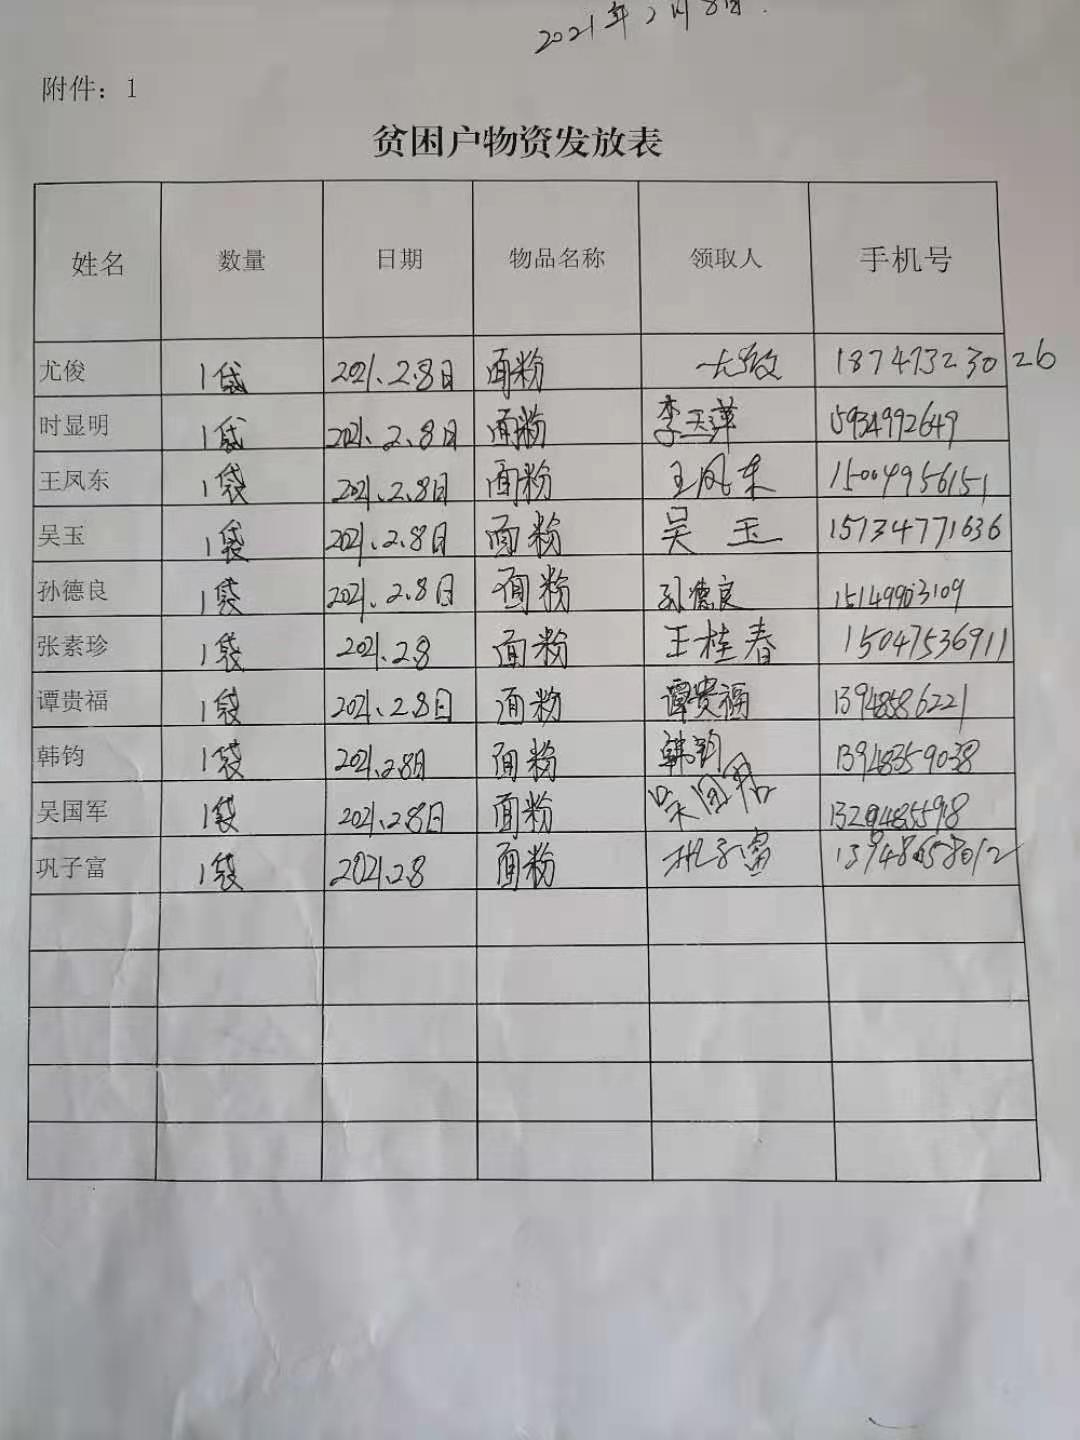 2021年2月8日.
附件：1
贫困户物资发放表
姓名 数量 日期 物品名称 领取人 手机号
尤俊 1袋 2021.2.8日 面粉 18747323026
时显明 1袋 2021.2.8日 面粉 李玉萍 15934992649
王凤东 1袋 2021.2.8日 面粉 王凤东 15004956151
吴玉 1袋 2021.2.8日 面粉 吴玉 15134771636
孙德良 1袋 2021.2.8日 面粉 孙德良 15149903109
张素珍 1袋 2021.2.8 面粉 王桂春 15047536911
谭贵福 1袋 2021.2.8日 面粉 谭贵福 13948586221
韩钧 1袋 2021.2.8日 面粉 韩钧 13948359038
吴国军 1袋 2021.2.8日 面粉 吴国君 13294855918
巩子富 1袋 2021.2.8 面粉 巩子富 13948658012